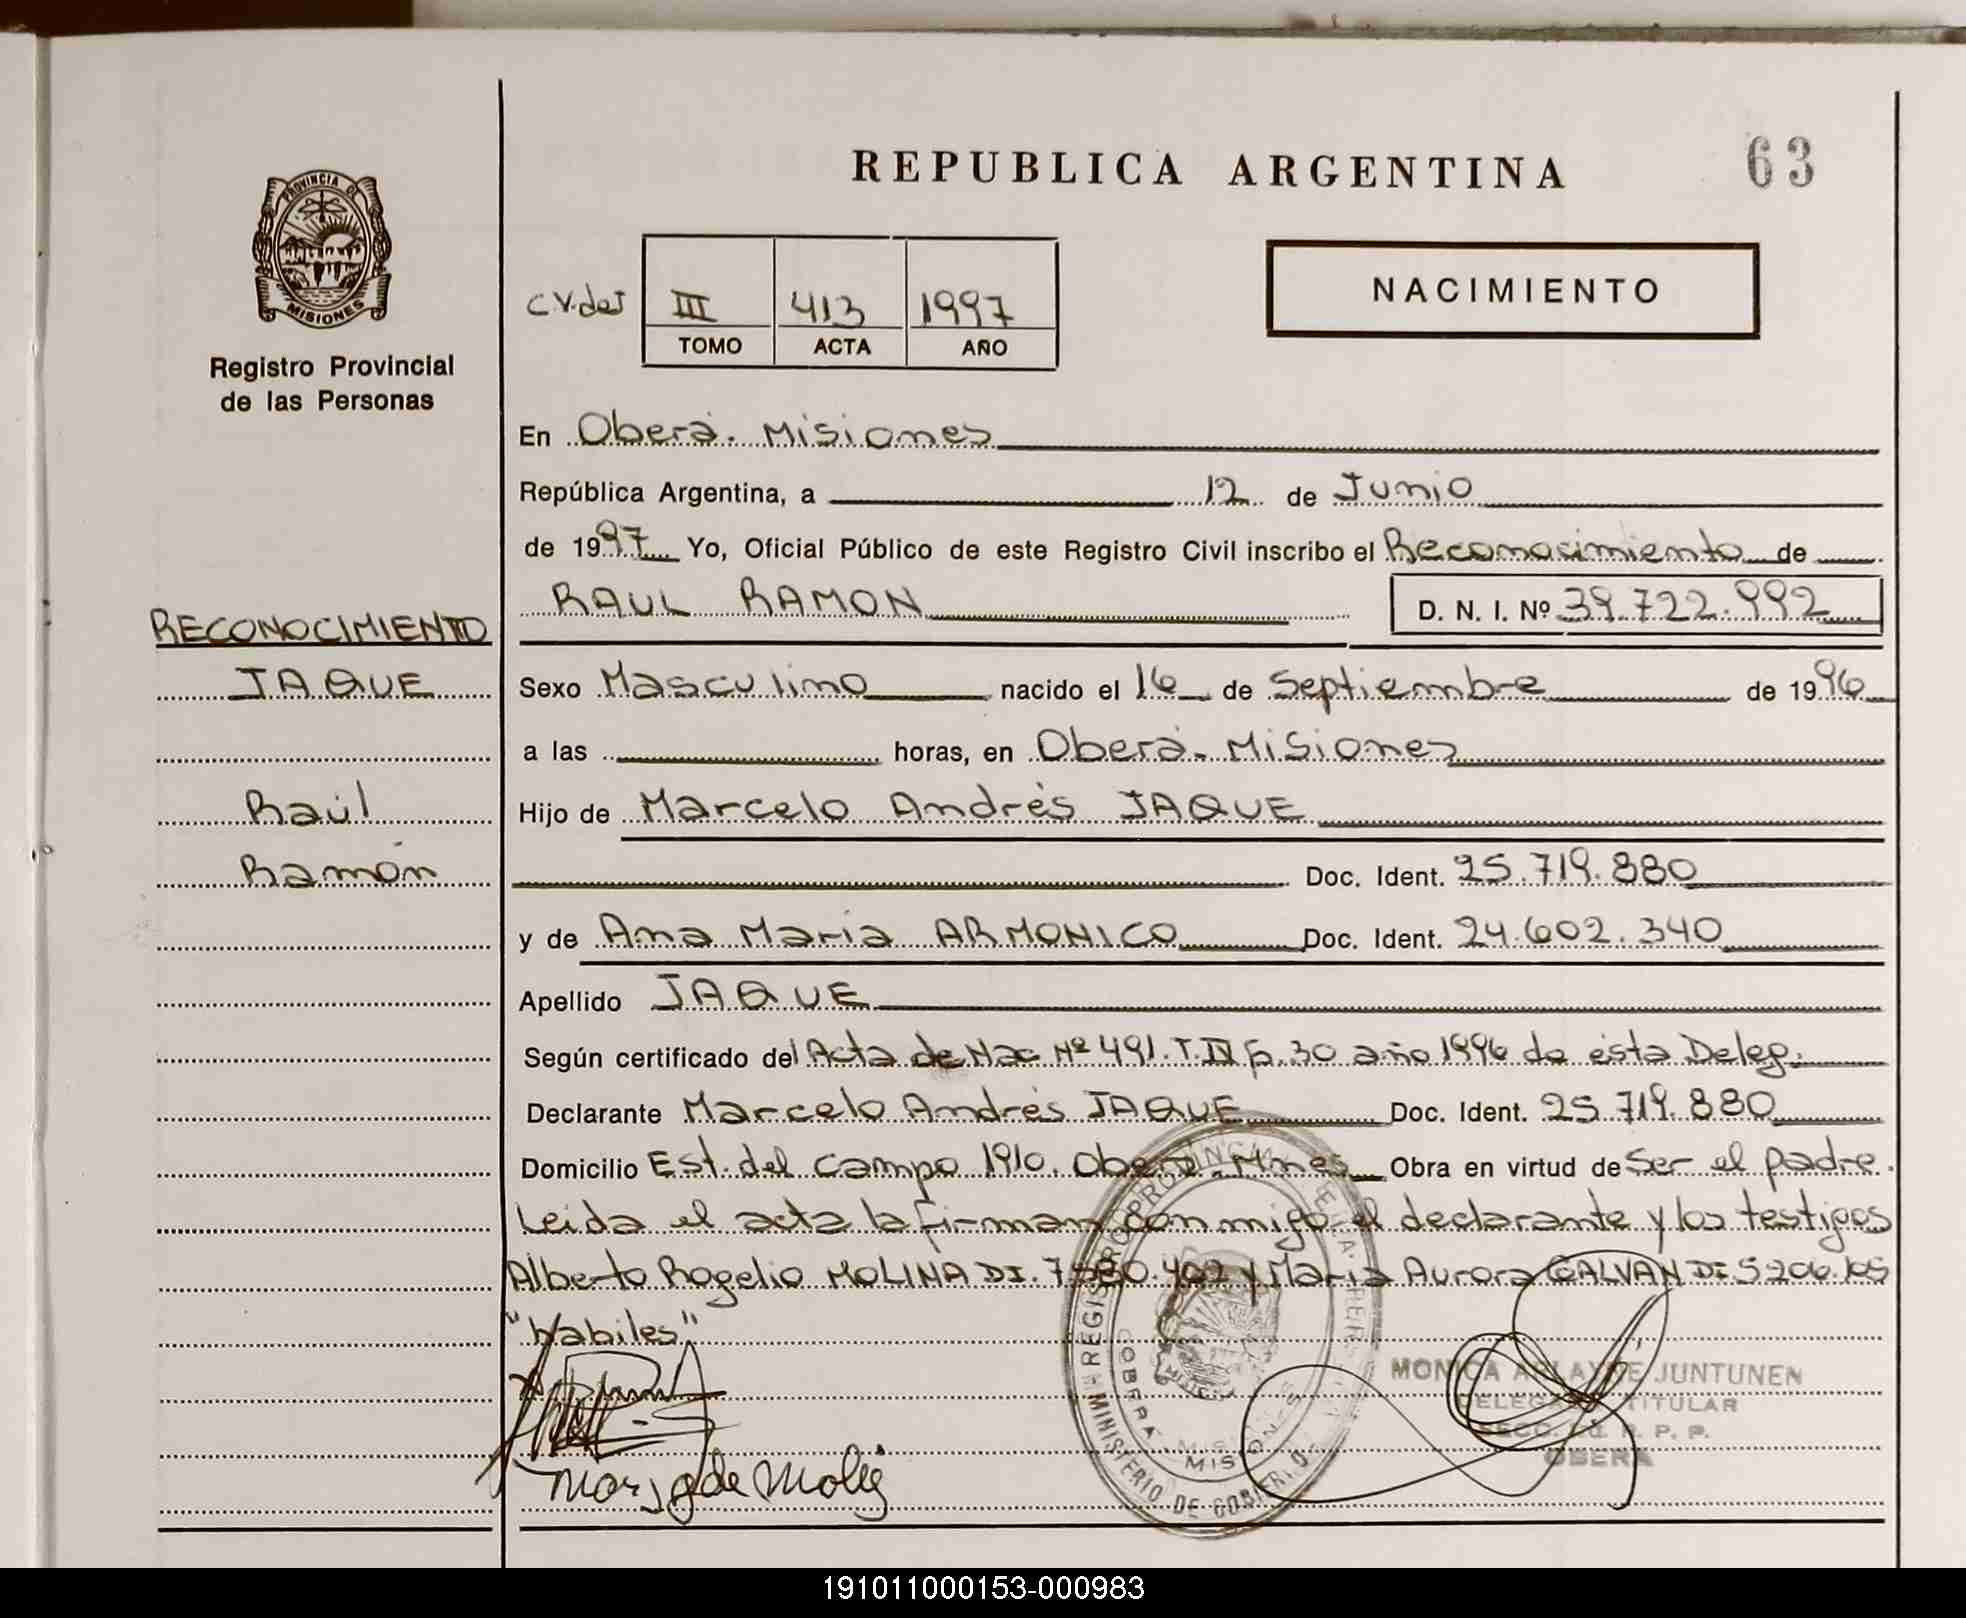 REPUBLICA ARGENTINA
63
PROVINCIA DE
MISIONES
Registro Provincial
de las Personas
III 413 1997
TOMO ACTA AÑO
NACIMIENTO
En Oberá. Misiones
República Argentina, a 12 de Junio
de 1997 Yo, Oficial Público de este Registro Civil inscribo el Reconocimiento de
RAUL RAMON D. N. I. Nº 39.722.992
RECONOCIMIENTO
JAQUE
Raúl
Ramón
Sexo Masculino nacido el 16 de Septiembre de 1996
a las horas, en Oberá. Misiones
Hijo de Marcelo Andrés JAQUE
Doc. Ident. 25.719.880
y de Ana María ARMONICO Doc. Ident. 24.602.340
Apellido JAQUE
Según certificado del Acta de Nac Nº 491. T. IV F. 30 año 1996 de ésta Deleg.
Declarante Marcelo Andrés JAQUE Doc. Ident. 25.719.880
Domicilio Est. del Campo 1910. Oberá. Mnes Obra en virtud de Ser el padre.
Leída el acta la firman conmigo el declarante y los testigos
Alberto Rogelio MOLINA DI. y María Aurora GALVAN DI.
"Habiles"
MONICA JUNTUNEN
DELEGADA TITULAR
R. P. P.
OBERA
MINISTERIO DE GOBIERNO
OBERA MISIONES
191011000153-000983